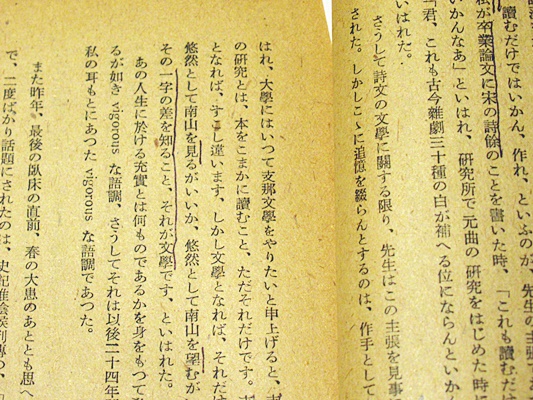 讀むだけではいかん。作れ、といふのが、先生の主張で
私が卒業論文に宋の詩餘のことを書いた時、「これも讀むだけ
いかんなあ」といはれ、研究所で元曲の研究をはじめた時に
「君、これも古今雜劇三十種の白が補へる位にならんといかん
いはれた。
さうして詩文の文學に關する限り、先生はこの主張を見事
された。しかしこゝに追憶を綴らんとするのは、作手として
はれ、大學にはいつて支那文學をやりたいと申上げると、
の研究とは、本をこまかに讀むこと、ただそれだけです。
となれば、すこし違います、しかし文學となれば、それだけ
悠然として南山を見るがいいか、悠然として南山を望むが
その一字の差を知ること、それが文學です、といはれた。
あの人生に於ける充實とは何ものであるかを身をもつて
るが如き vigorous な語調、さうしてそれは以後二十四年
私の耳もとにあつた vigorous な語調であつた。
また昨年、最後の臥床の直前、春の大患のあととも思へ
で、二度ばかり話題にされたのは、史記淮陰侯列傳の、